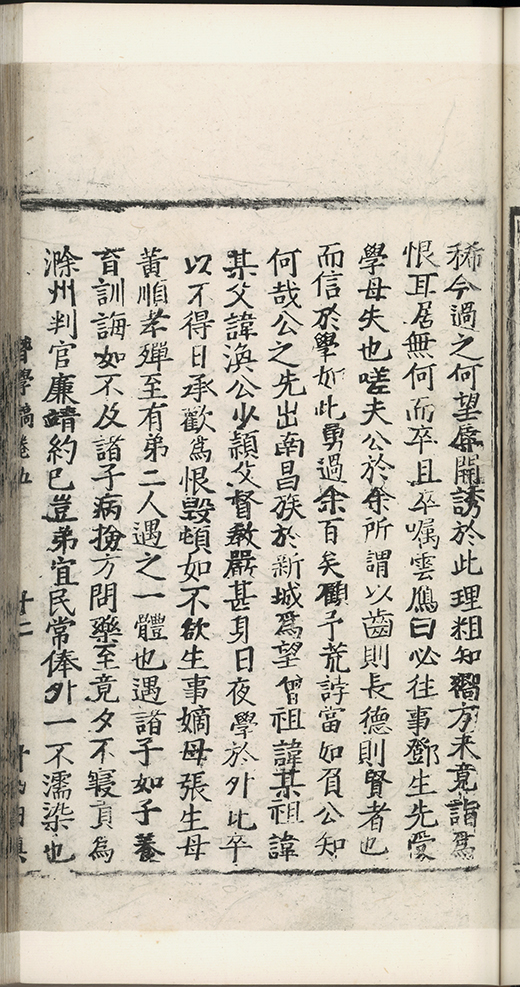 稀今過之何望辱開誘於此理粗知嚮方未竟詣爲
恨耳居無何而卒且卒嘱雲鴈曰必往事鄧生先受
學母失也嗟夫公於余所謂以齒則長德則賢者也
而信於學如此勇過余百矣顧予荒誖當如負公知
何哉公之先出南昌族於新城爲望曾祖諱某祖諱
某父諱渙公少穎父督教嚴甚身日夜學於外比卒
以不得日承歡爲恨毀頓如不欲生事嫡母張生母
黃順孝殫至有弟二人遇之一體也遇諸子如子養
育訓誨如不及諸子病撿方問藥至竟夕不寢貢爲
滁州判官廉靖約已豈弟宜民常俸外一不濡染也
學稿卷五
廿二